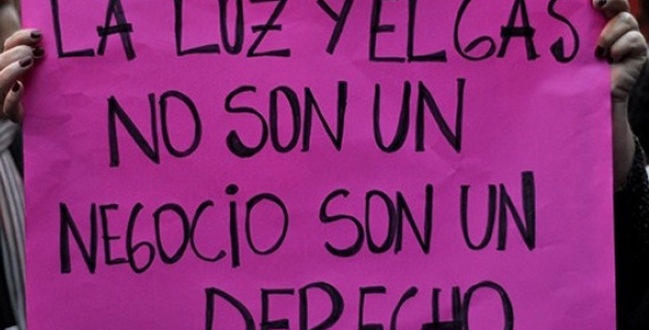 LA LUZ Y EL GAS
NO SON UN
NEGOCiO SON UN
DERECHO